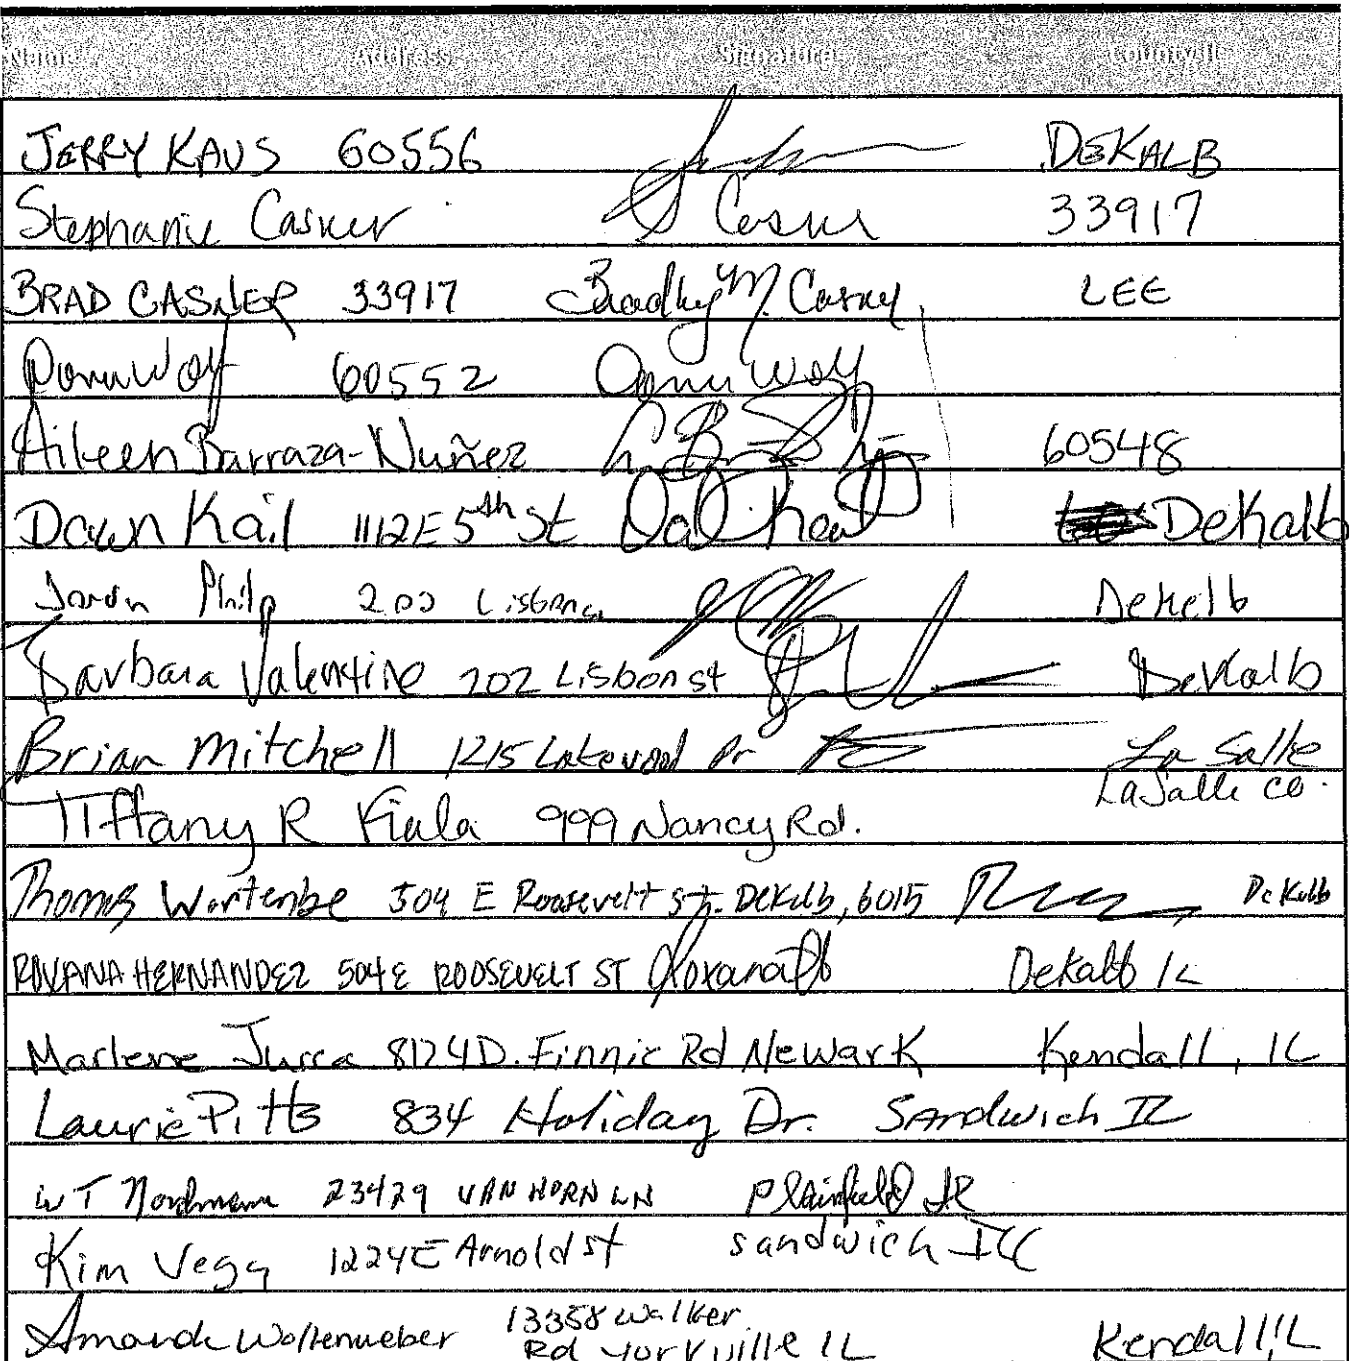 Name Address Signature County/IL
JERRY KAUS 60556 DEKALB
Stephanie Casner S Casner 33917
BRAD CASNER 33917 Bradley M. Casner LEE
Wolf 60552 Wolf
Aileen Barraza-Nuñez 60548
Dawn Kail 1112 E 5th St DeKalb
Philp 202 Lisbon DeKalb
Barbara Valentine 202 Lisbon st DeKalb
Brian Mitchell 1215 Lakewood Dr La Salle
Tiffany R Fiala 999 Nancy Rd. LaSalle co.
Thomas Wartenbe 504 E Roosevelt St. DeKalb, 6015 DeKalb
ROXANA HERNANDEZ 504 E ROOSEVELT ST Roxana DeKalb IL
Marlene Jurca Finnie Rd Newark Kendall, IL
Laurie Pitts 834 Holiday Dr. Sandwich IL
WT Nordmann 23429 VAN HORN LN Plainfield IL
Kim Vega 1224 E Arnold st sandwich ILL
Amanda Wollenweber 13358 Walker Kendall, IL
Rd Yorkville IL